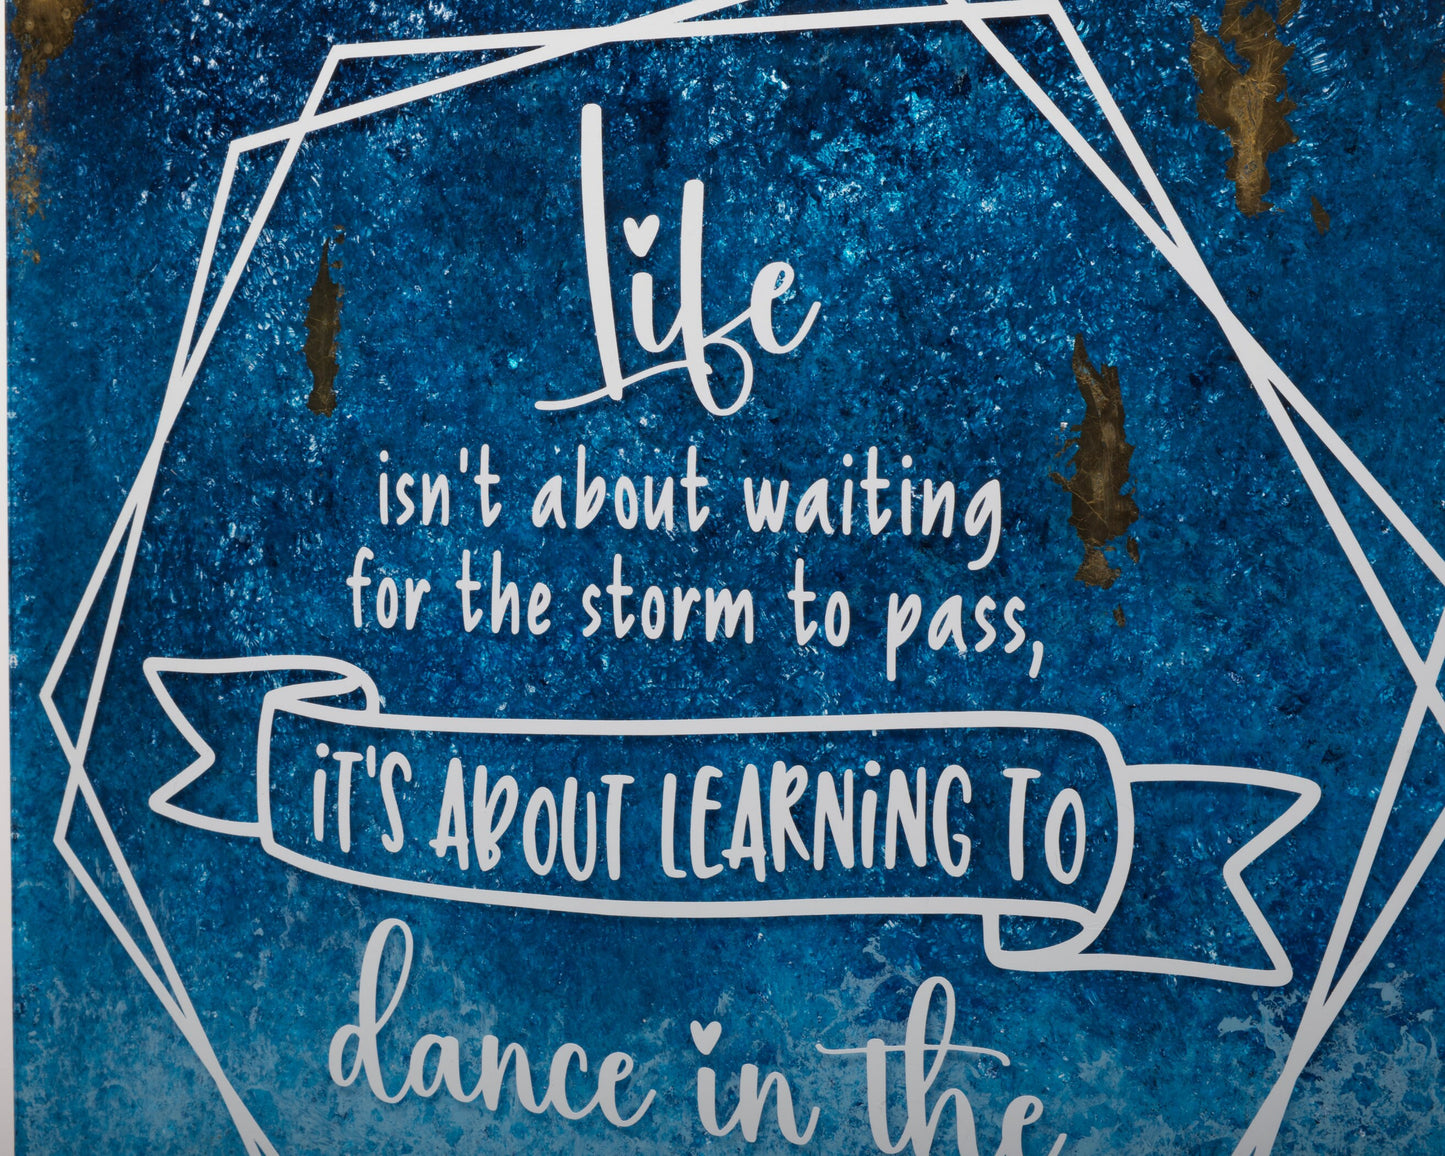 Life
isn't about waiting
for the storm to pass,
iT'S ABOUT LEARNiNG TO
dance in the